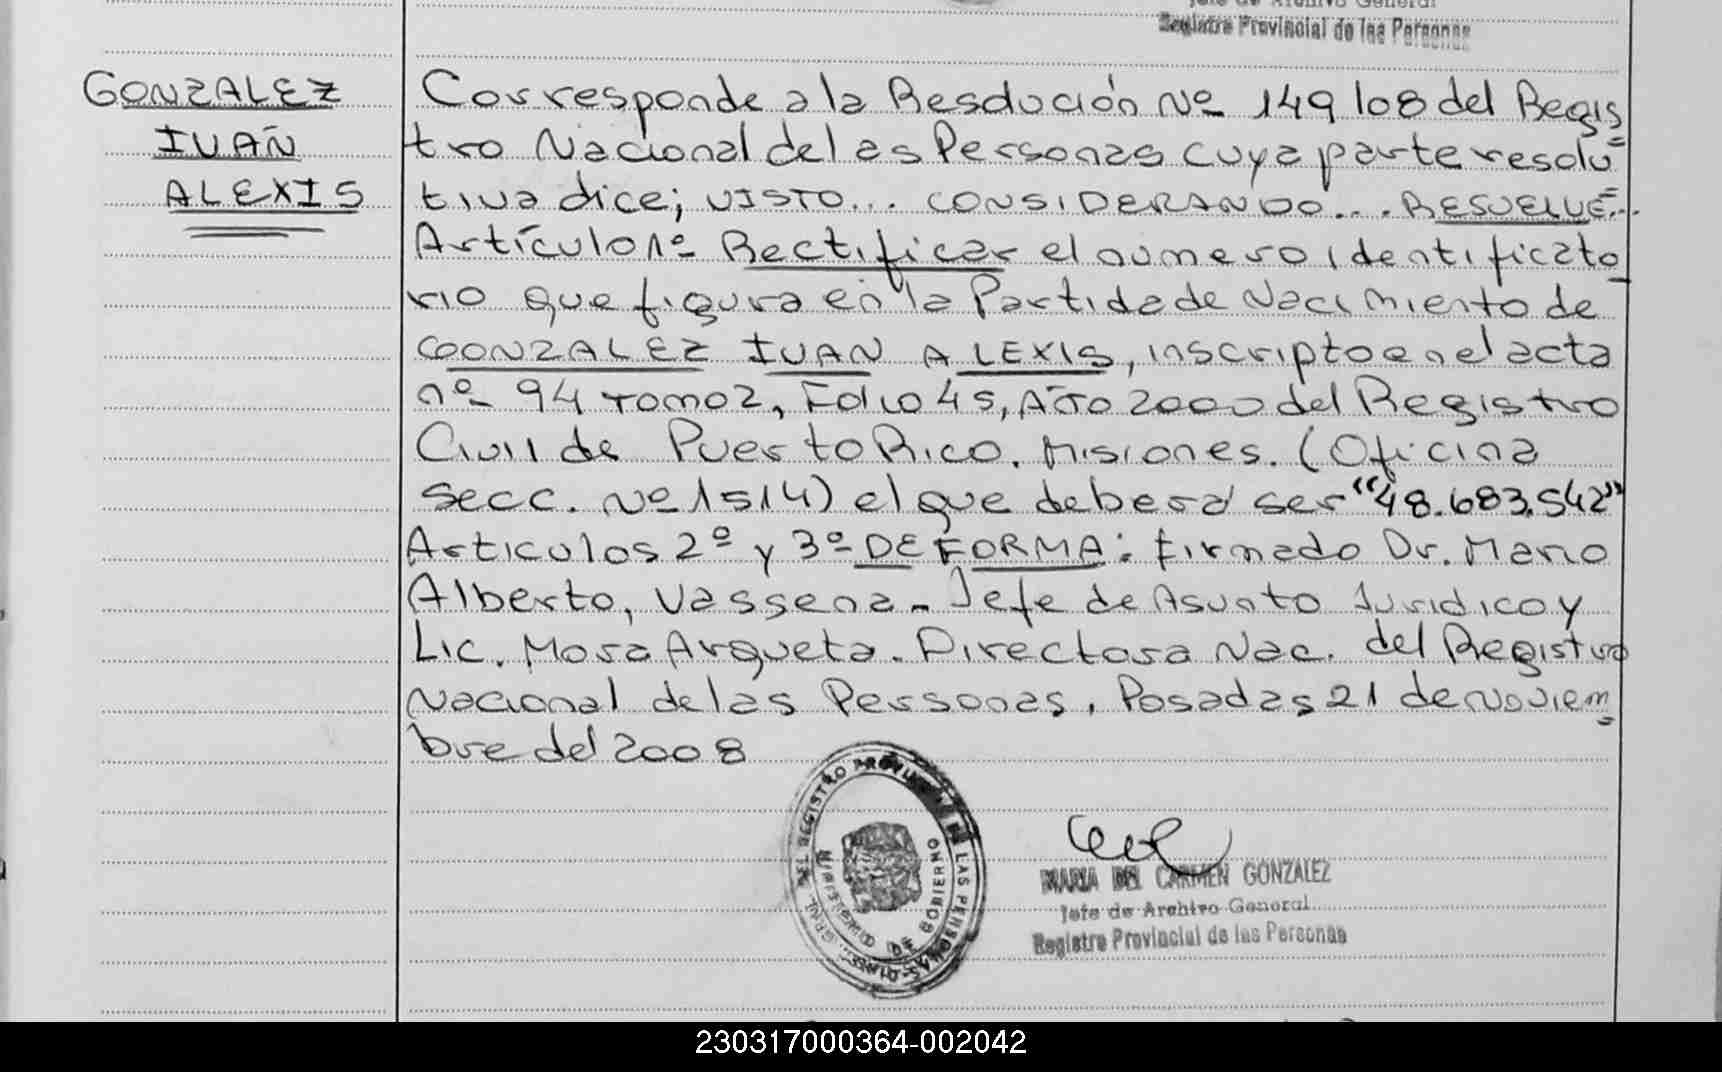 Jefe de Archivo General
Registro Provincial de las Personas
GONZALEZ
IVAN
ALEXIS
Corresponde a la Resolución Nº 149/08 del Regis
tro Nacional de las Personas cuya parte resolu
tiva dice; VISTO... CONSIDERANDO... RESUELVE...
Artículo 1º Rectificar el numero identificato
rio que figura en la Partida de Nacimiento de
GONZALEZ IVAN ALEXIS, inscripto en el acta
nº 94 Tomo 2, Folio 45, Año 2000 del Registro
Civil de Puerto Rico. Misiones. (Oficina
secc. Nº 1514) el que deberá ser "48.683.542"
Articulos 2º y 3º DE FORMA: firmado Dr. Mario
Alberto, Vassena. Jefe de Asunto Juridico y
Lic. Mora Arqueta. Directora Nac. del Registro
Nacional de las Personas, Posadas 21 de noviem
bre del 2008
REGISTRO PROVINCIAL DE LAS PERSONAS
MINISTERIO DE GOBIERNO
MARIA DEL CARMEN GONZALEZ
Jefe de Archivo General
Registro Provincial de las Personas
230317000364-002042